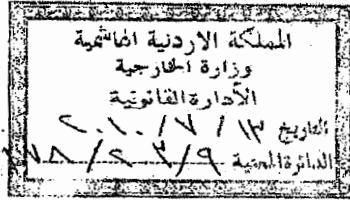 المملكة الاردنية الهاشمية
وزارة الخارجية
الأدارة القانونية
التاريخ ١٣ / ٧ / ٢٠١٠
الدائرة المعنية